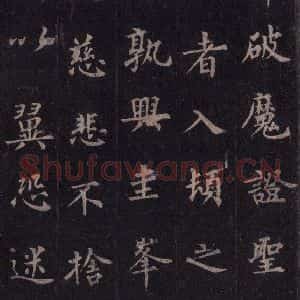 破魔證聖
者入頓之
孰興圭峯
慈悲不捨
以翼迷
Shufawang.CN